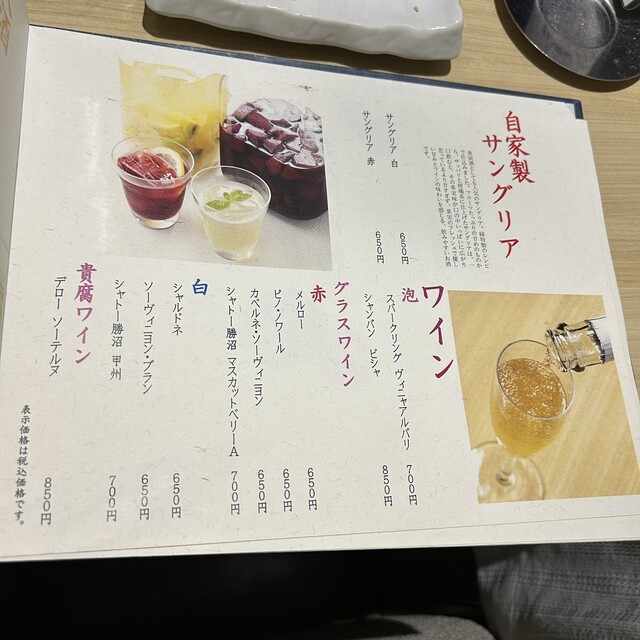 自家製
サングリア
サングリア 白 650円
サングリア 赤 650円
ワイン
泡
スパークリング ヴィニャアルバリ 700円
シャンパン ビシャ 850円
グラスワイン
赤
メルロー 650円
ピノ・ノワール 650円
カベルネ・ソーヴィニヨン 650円
シャトー勝沼 マスカットベリーA 700円
白
シャルドネ 650円
ソーヴィニヨン・ブラン 650円
シャトー勝沼 甲州 700円
貴腐ワイン
デロー ソーテルヌ 850円
表示価格は税込価格です。